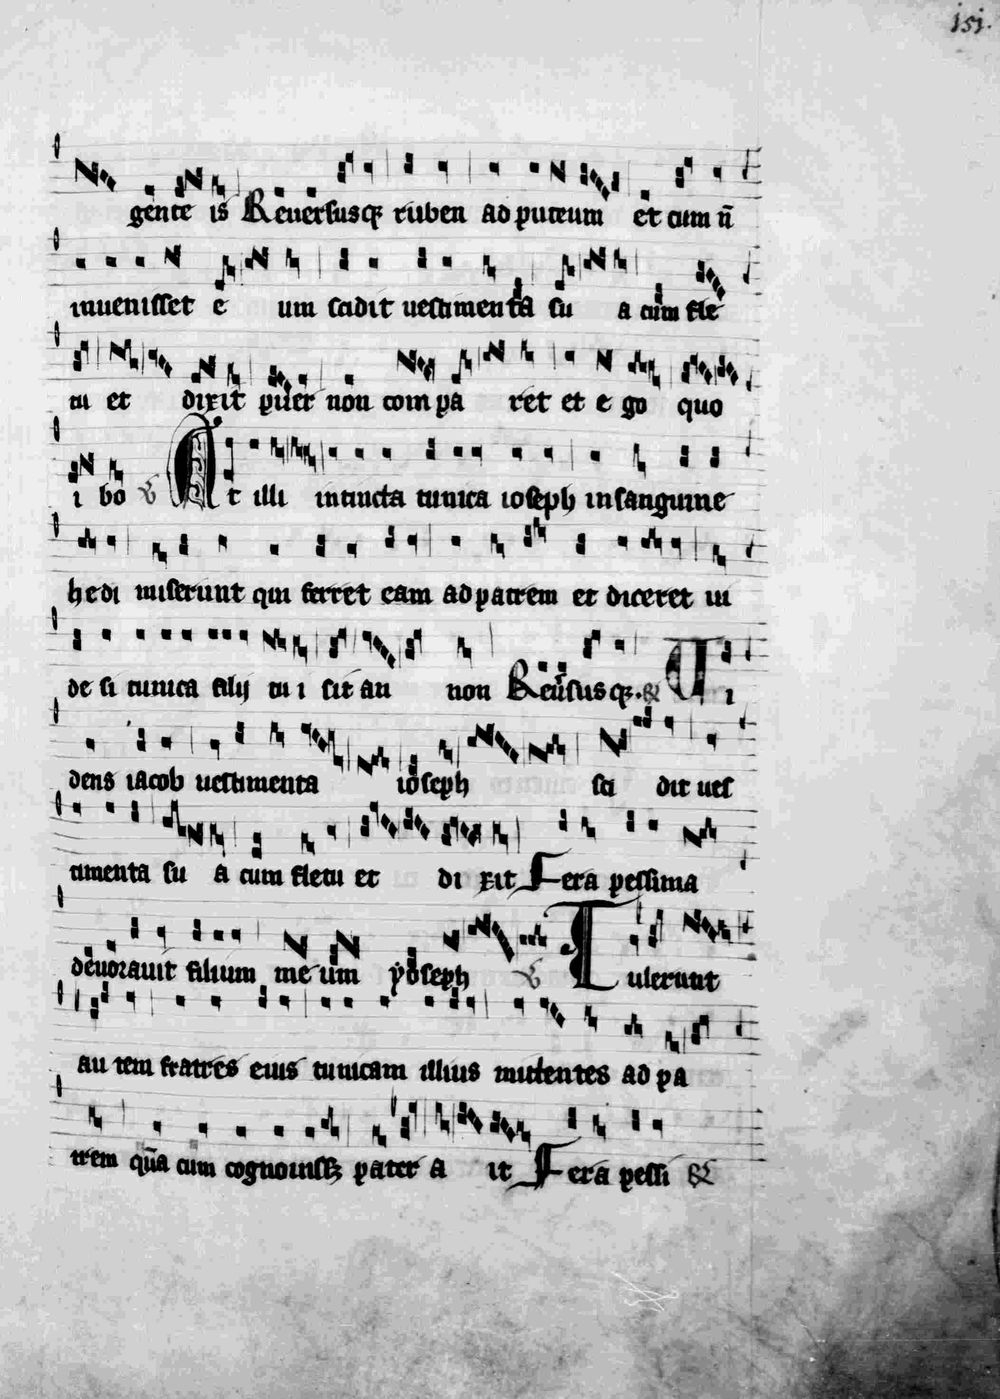 151.
gente is Reuersusqꝫ ruben ad puteum et cum n̄
inuenisset e um scidit uestimenta su a cum fle
tu et dixit puer non compa ret et e go quo
i bo ℣ At illi intincta tunica ioseph in sanguine
hedi miserunt qui ferret eam ad patrem et diceret ui
de si tunica filij tu i sit an non Reu͛susqꝫ. ⁊ Ui
dens iacob uestimenta ioseph sci dit ues
timenta su a cum fletu et di xit Fera pessima
deuorauit filium me um yoseph ℣ Tulerunt
au tem fratres eius tunicam illius mittentes ad pa
trem qu̅a cum cognouissꝫ pater a it Fera pessi ⁊